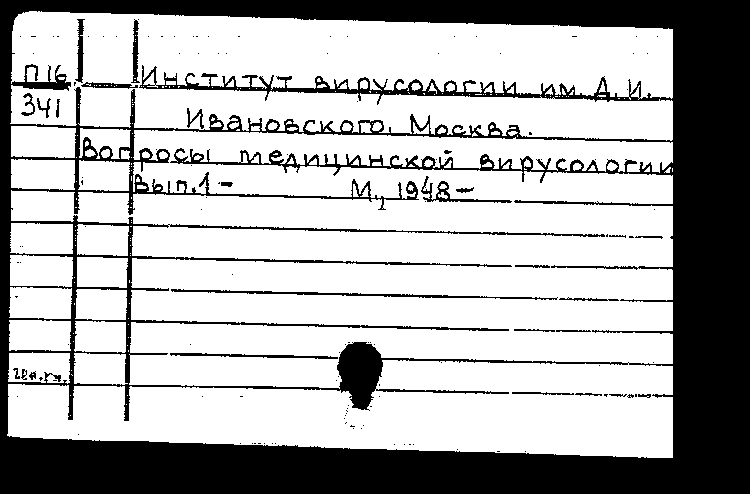 П16
341
Институт вирусологии им. Д. И.
Ивановского. Москва.
Вопросы медицинской вирусологии
Вып. 1 - М., 1948-